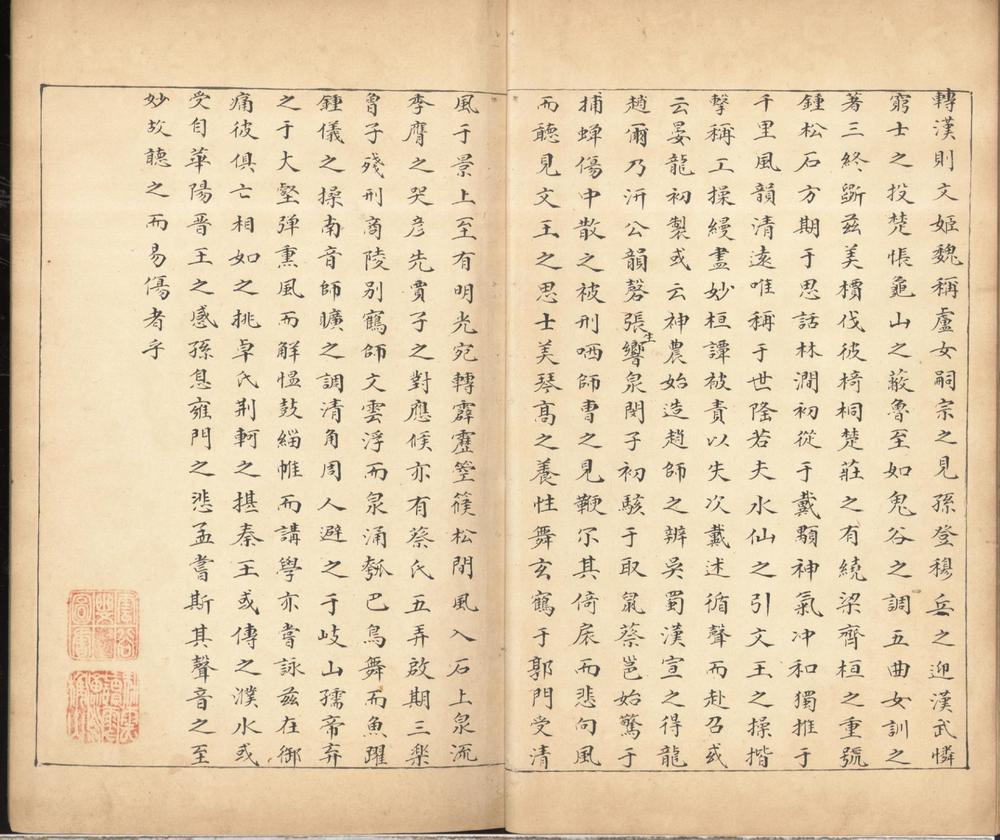 轉漢則文姬魏稱盧女嗣宗之見孫登穆岳之迎漢武憐
窮士之投楚悵龜山之蔽魯至如鬼谷之調五曲女訓之
著三終斲茲美檟伐彼椅桐楚莊之有繞梁齊桓之重號
鍾松石方期于思話林澗初從于戴顒神氣冲和獨推于
千里風韻清遠唯稱于世隆若夫水仙之引文王之操揩
擊稱工操縵盡妙桓譚被責以失次戴述循聲而赴召或
云晏龍初製或云神農始造趙師之辨吳蜀漢宣之得龍
趙爾乃汧公韻磬張生響泉閔子初駭于取鼠蔡邕始驚于
捕蟬傷中散之被刑哂師曹之見鞭尓其倚扆而悲句風
而聽見文王之思士美琴高之養性舞玄鶴于郭門受清
風于景上至有明光宛轉霹靂箜篌松閒風入石上泉流
季膺之哭彥先賁子之對應侯亦有蔡氏五弄啟期三樂
曾子殘刑商陵别鶴師文雲浮而泉涌瓠巴鳥舞而魚躍
鍾儀之操南音師曠之調清角周人避之于岐山孺帝弃
之于大壑弹熏風而解愠鼓緇帷而講學亦嘗詠茲在御
痛彼俱亡相如之挑卓氏荆軻之揕秦王或傳之濮水或
受自華陽晋王之感孫息雍門之悲孟嘗斯其聲音之至
妙故聽之而易傷者乎